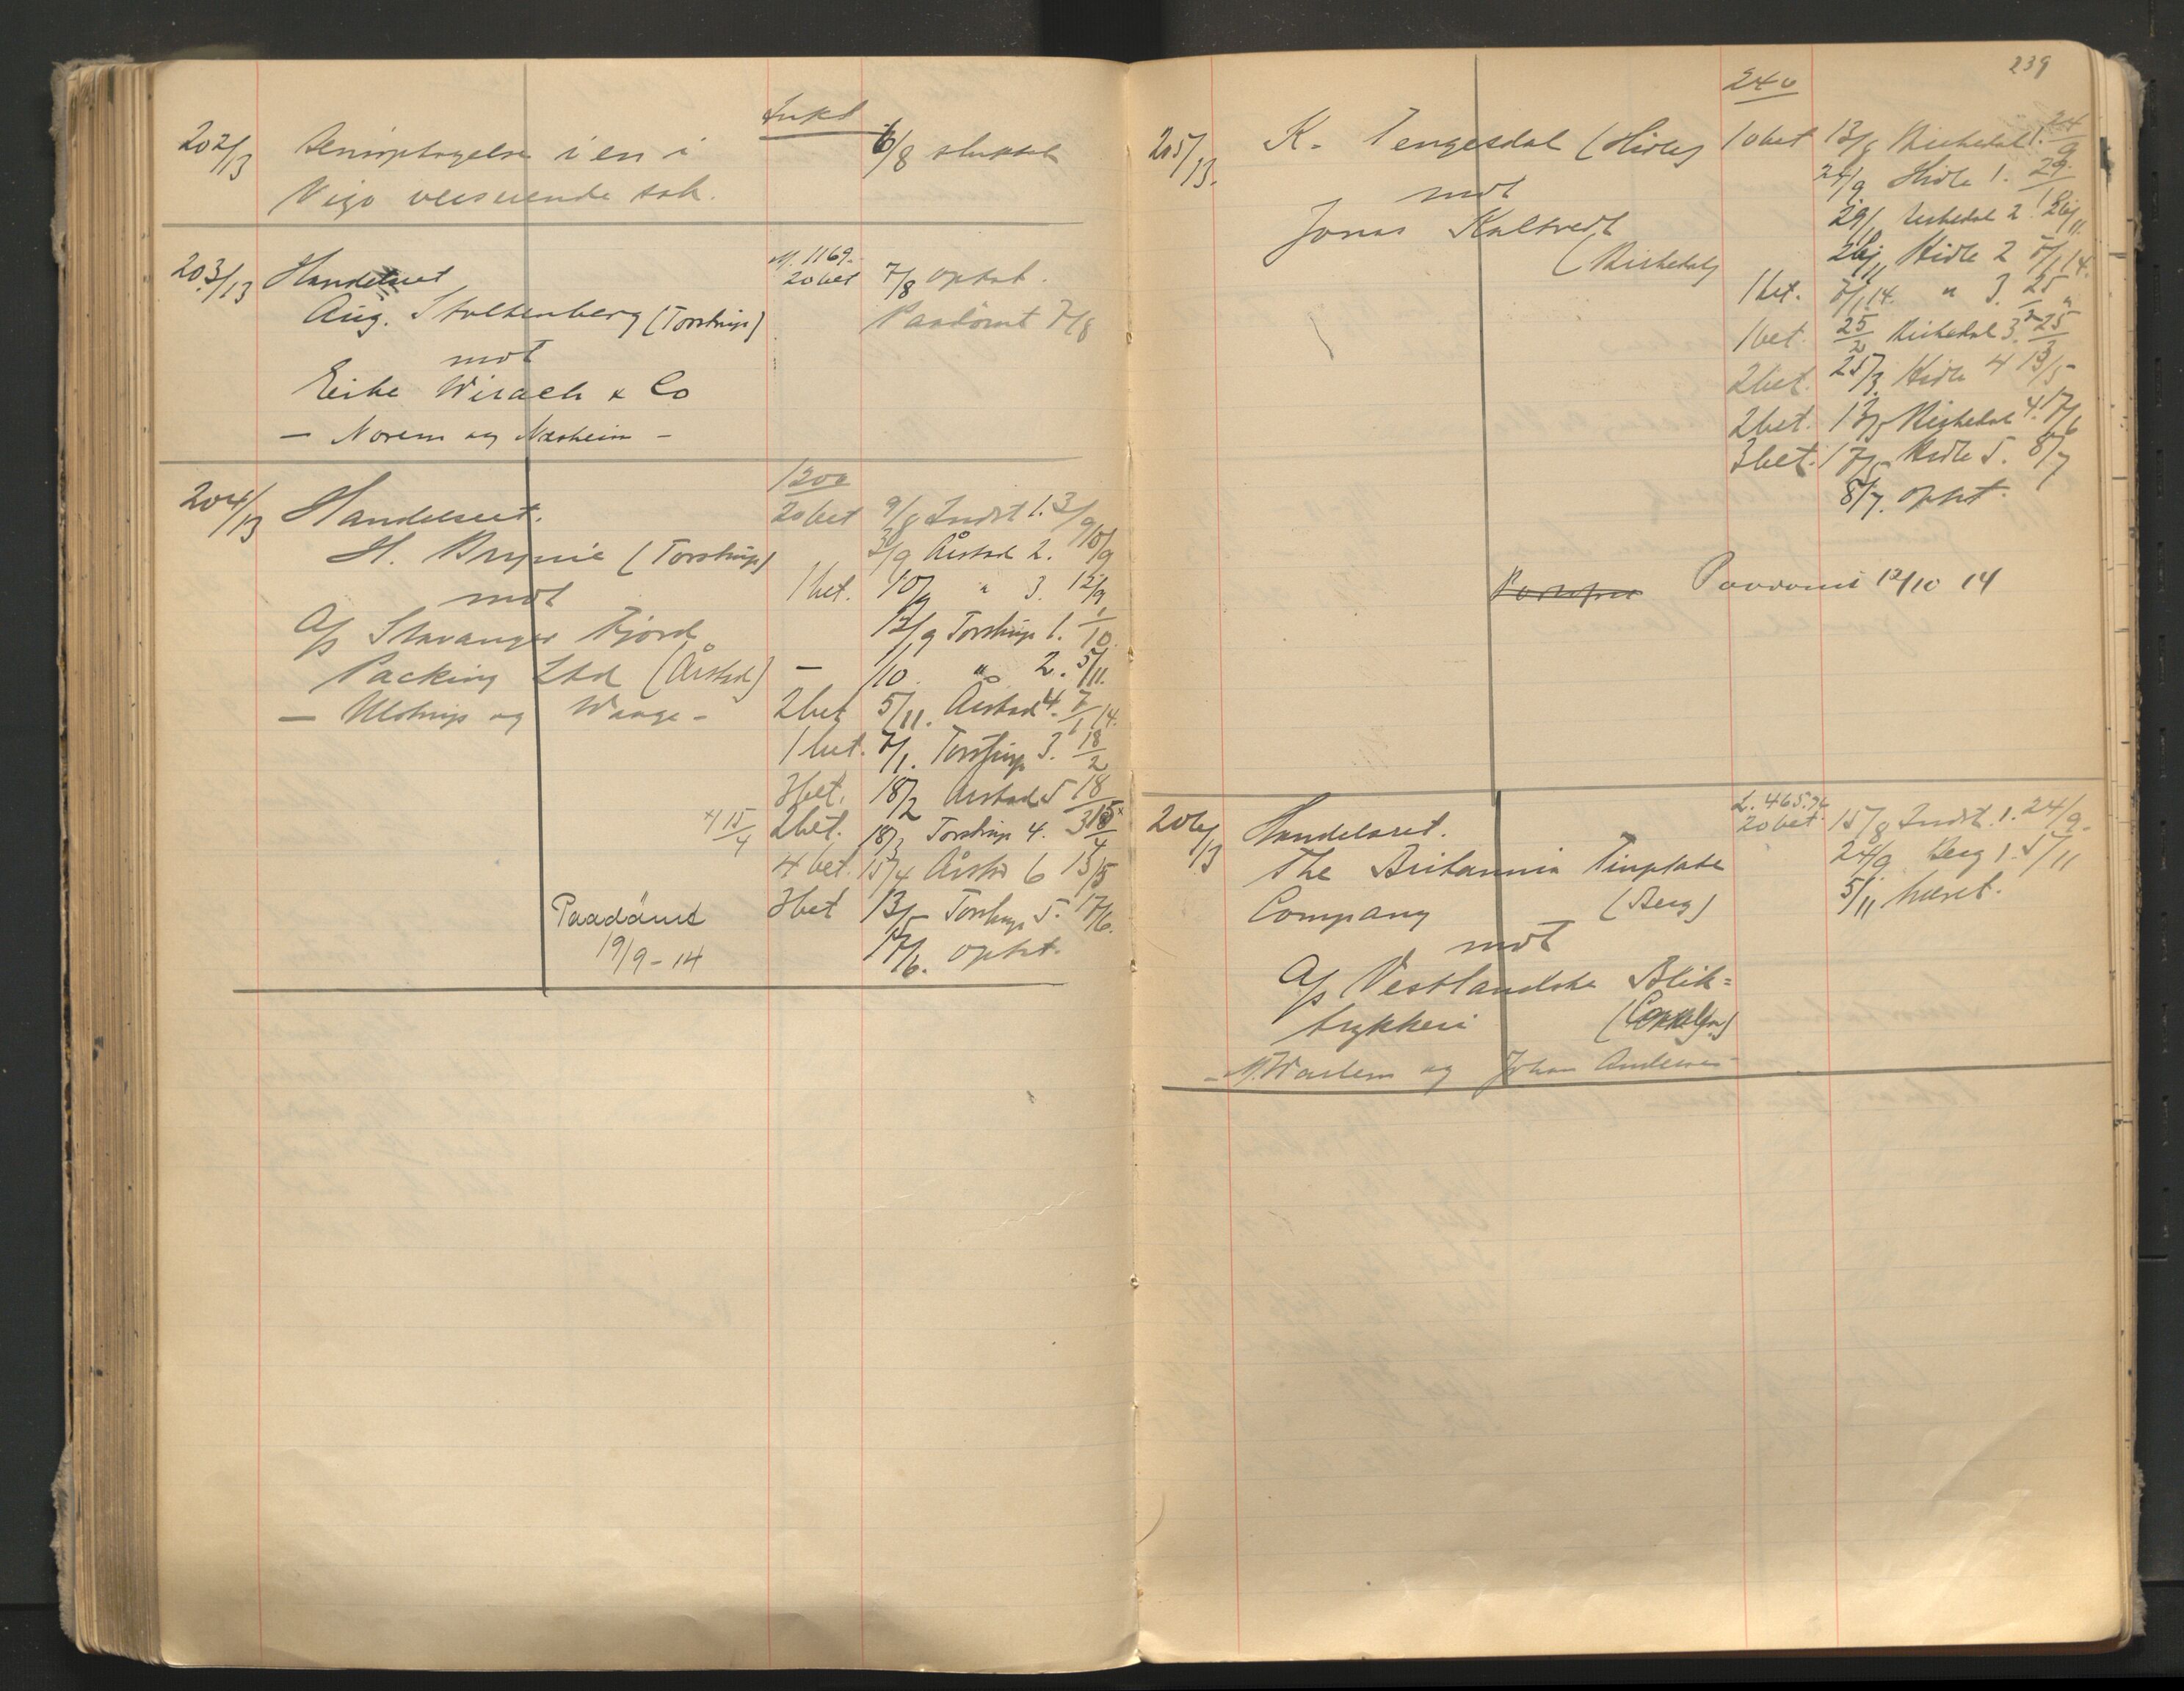 202/13 i en i 6/8 sluttet
Vigo verserende sak.
203/13 Handelsret M. 1169.
20 bet 7/8 optat.
Aug. Stoltenberg (Torstrup) Paadömt 7/8
mot
Eike & Co
— Norem og Næsheim —
1200
204/13 Handelsret. 20 bet 9/8 Indst 1. 3/9
H. (Torstrup) 3/9 Årstad 2. 10/9
mot 1 bet. 10/9 " 3. 12/9
A/S Stavanger Fjord 12/9 Torstrup 1. 1/10
Packing Ltd (Årstad) — 1/10 " 2. 5/11.
— og Waage — 2 bet 5/11. Årstad 4. 7/1 14.
1 bet. 7/1. Torstrup 3. 18/2
3 bet. 18/2 Årstad 5 18/3
15/4 2 bet. 18/3 Torstrup 4. 15/4
4 bet. 15/4 Årstad 6 13/5
Paadömt 3 bet 13/5 Torstrup 5. 17/6.
19/9 - 14 17/6. optat.
239
240
205/13. K. Tengesdal (Hidle) 10 bet 13/8 Kirkedal 1. 24/9
24/9 Hidle 1. 29/10
mot 29/10 Kirkedal 2 26/11
Jonas Kaltvedt
(Kirkedal) 26/11 Hidle 2 7/1 14.
1 bet. 7/1 14. " 3. 25/2 "
1 bet. 25/2 Kirkedal 3. 25/3
2 bet. 25/3. Hidle 4 13/5
2 bet. 13/5 Kirkedal 4. 17/6
3 bet. 17/6 Hidle 5. 8/7
8/7. optat.
Paadömt 12/10 14
206/13 Handelsret. £. 465.
20 bet 15/8 Indst. 1. 24/9.
The Britannia Tinplate 24/9 Berg 1. 5/11
Company (Berg) 5/11 hævet.
mot
A/S Vestlandske Blik=
trykkeri
— og Johan Andersen —